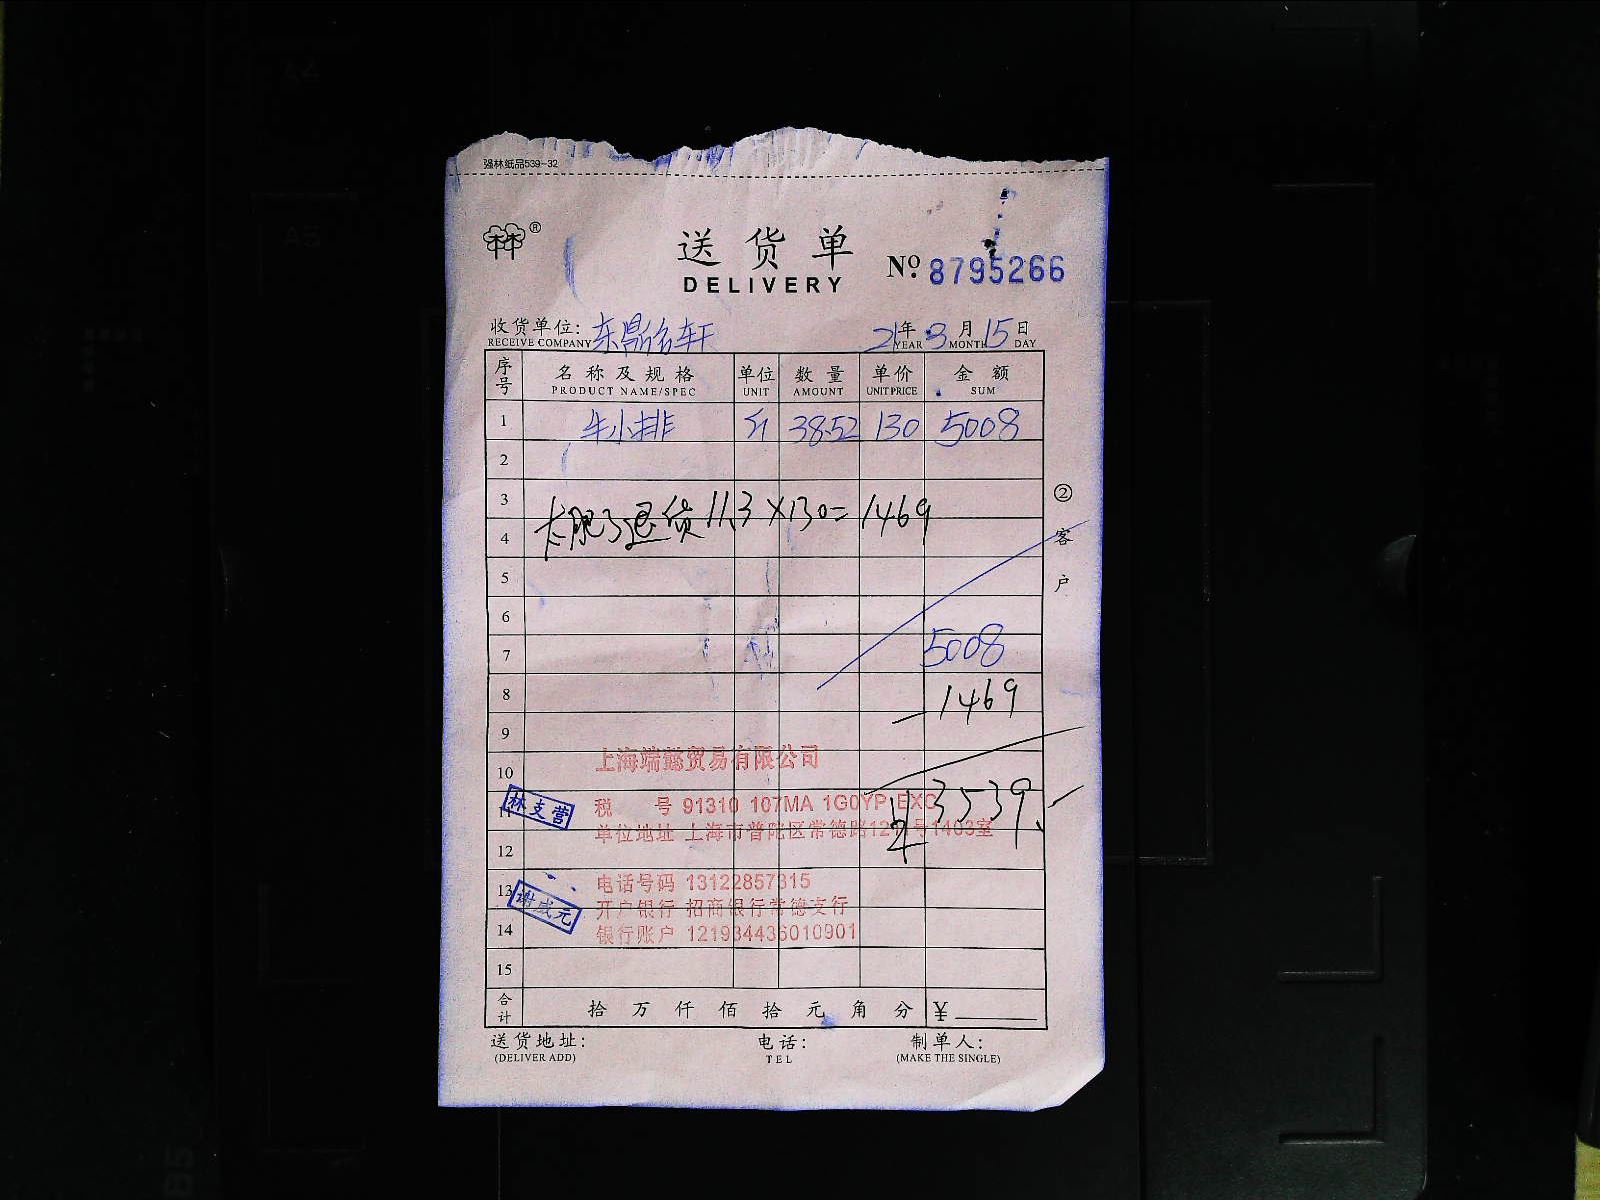 强林纸品539-32
林®
送货单
DELIVERY
№ 8795266
收货单位: 东鼎名轩 21年3月15日
RECEIVE COMPANY YEAR MONTH DAY
序号 名称及规格 单位 数量 单价 金额
PRODUCT NAME/SPEC UNIT AMOUNT UNIT PRICE SUM
1 牛小排 斤 38.52 130 5008
2
3
太肥了退货 11.3×130=1469
4
5
6
7 5008
8 -1469
9
上海端懿贸易有限公司
10
林支营
11 税 号 91310 107MA 1G0YP EXC 3539
单位地址 上海市普陀区常德路1211号1403室
12
电话号码 13122857315
13
谢成元
开户银行 招商银行常德支行
14 银行账户 121934436010901
15
合计 拾 万 仟 佰 拾 元 角 分 ¥
送货地址: 电话: 制单人:
(DELIVER ADD) TEL (MAKE THE SINGLE)
②客户